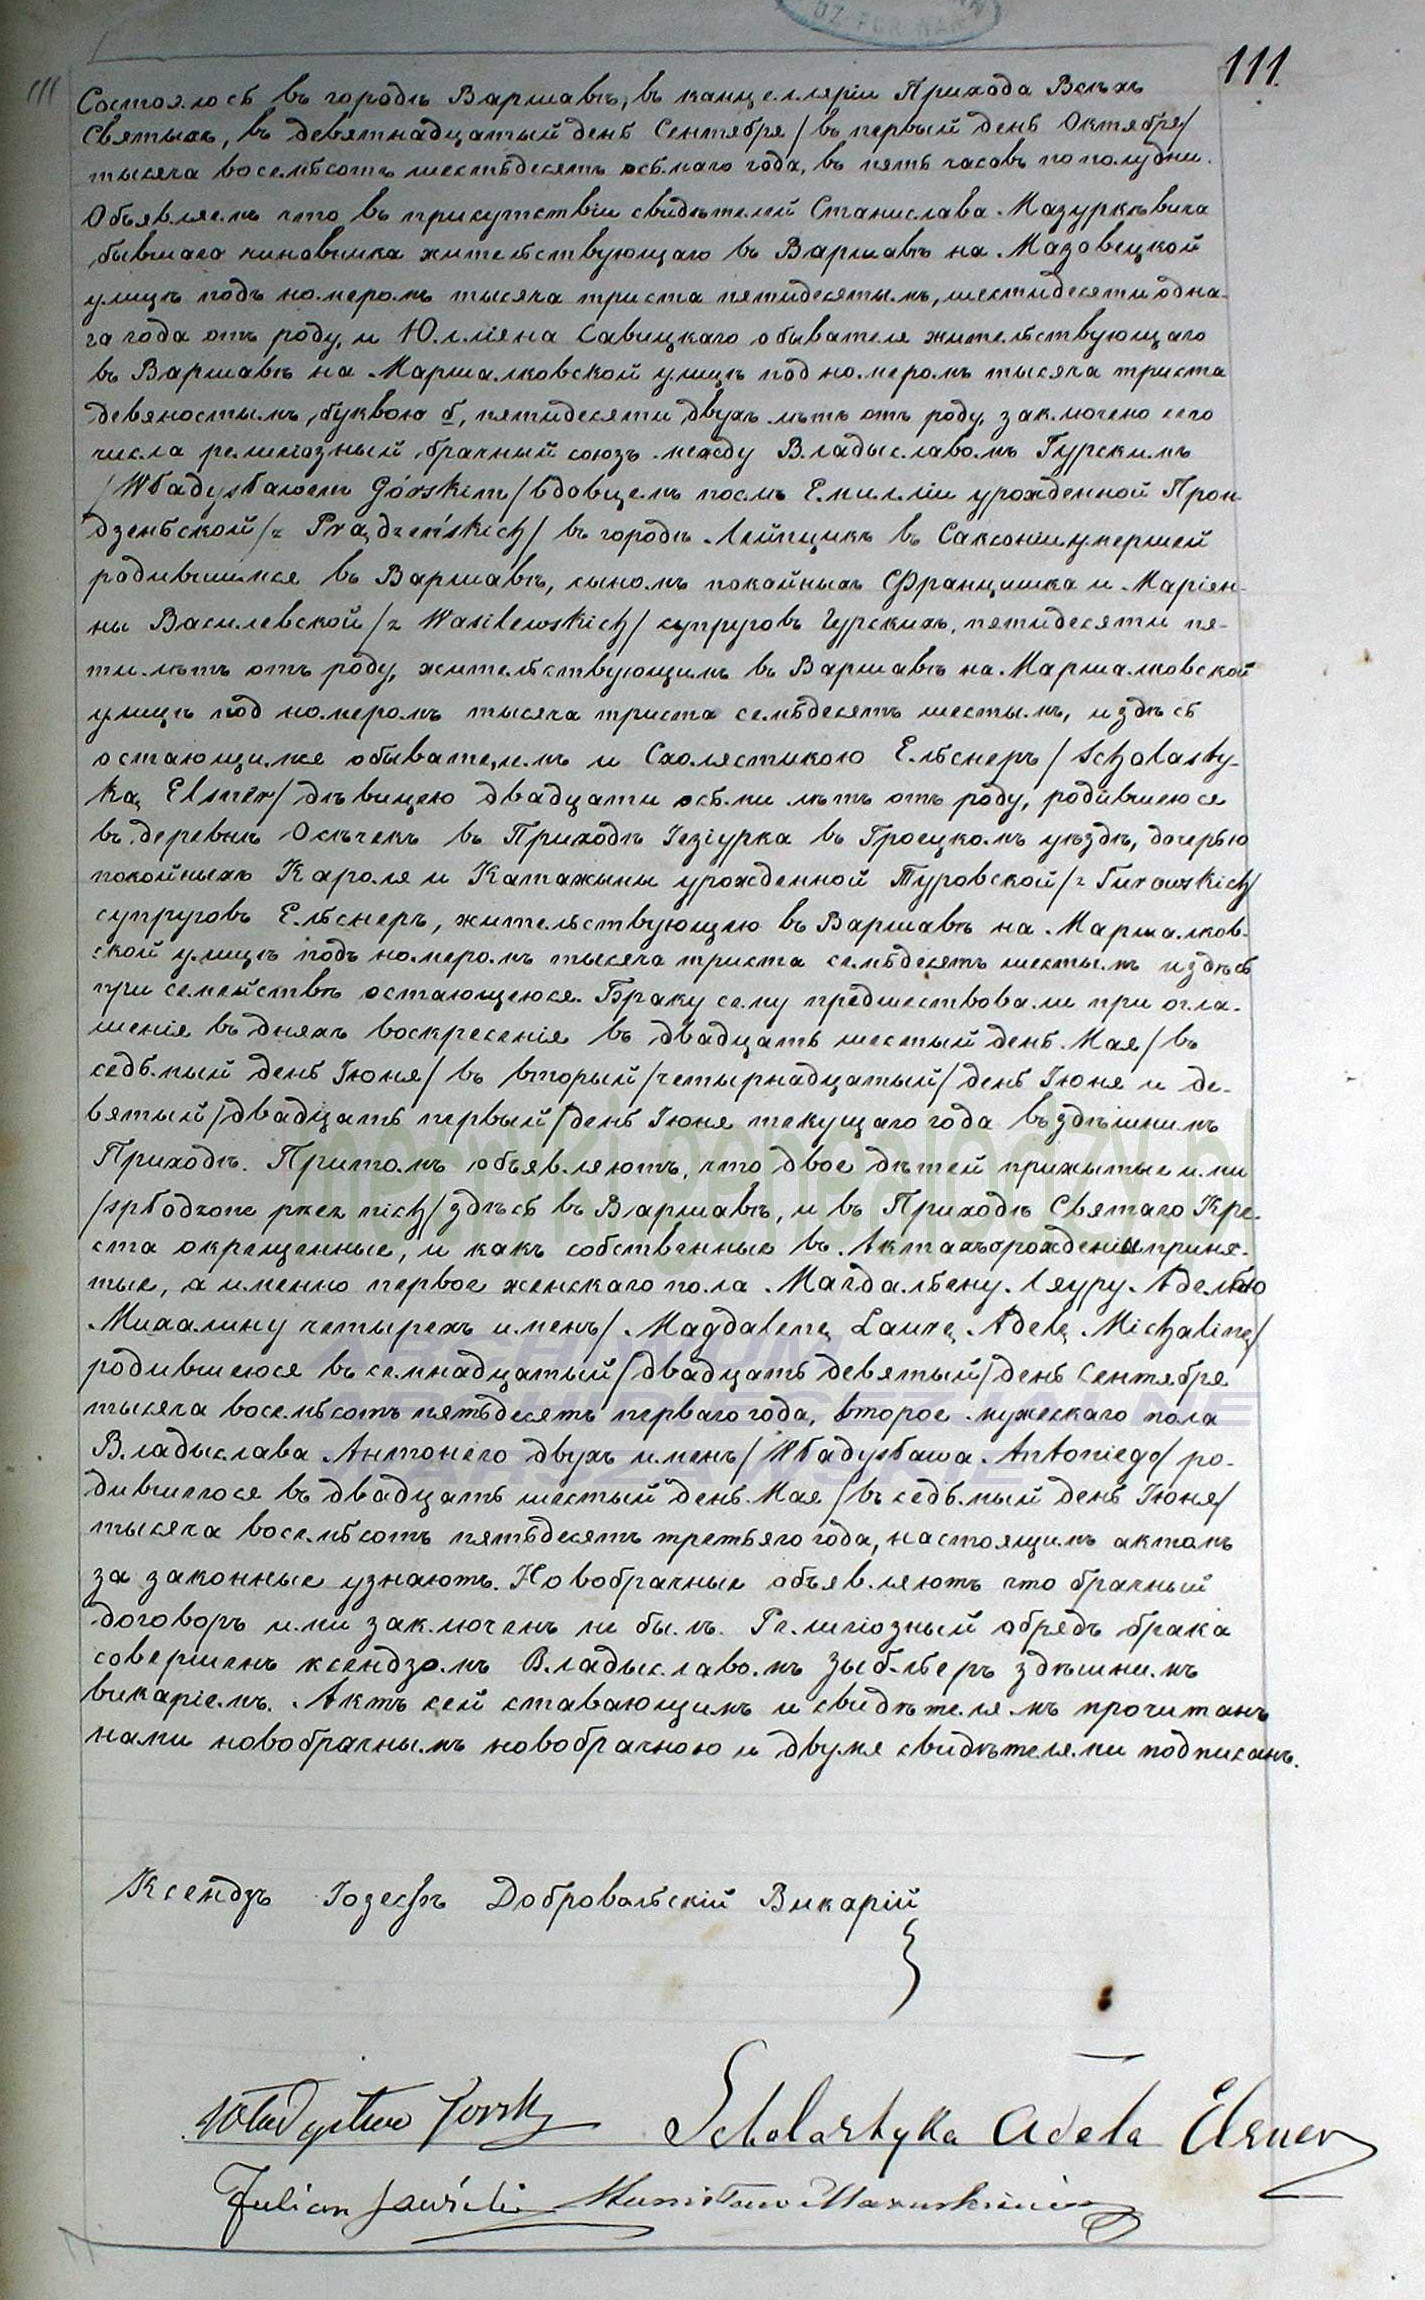 111
111.
Состоялось въ городѣ Варшавѣ, въ канцелляріи Прихода Всѣхъ
Святыхъ, въ девятнадцатый день Сентября /въ первый день Октября/
тысяча восемьсотъ шестьдесятъ осьмаго года, въ пять часовъ пополудни.
Объявляемъ что въ присутствіи свидѣтелей Станислава Мазуркѣвича
бывшаго чиновника жительствующаго въ Варшавѣ на Мазовецкой
улицѣ подъ номеромъ тысяча триста пятидесятымъ, шестидесяти одна-
го года отъ роду, и Юліяна Савицкаго обывателя жительствующаго
въ Варшавѣ на Маршалковской улицѣ под номеромъ тысяча триста
девяностымъ буквою б, пятидесяти двухъ лѣтъ отъ роду, заключено сего
числа религіозный брачный союзъ между Владыславомъ Гурскимъ
/Władysławem Górskim/ вдовцемъ послѣ Емиліи урожденной Прон-
дзеньской /z Prądzeńskich/ въ городѣ Лейпцикѣ въ Саксоніи умершей
родившимся въ Варшавѣ, сыномъ покойныхъ Францишка и Маріян-
ны Василевской /z Wasilewskich/ супруговъ Гурскихъ, пятидесяти пя-
ти лѣтъ отъ роду, жительствующимъ въ Варшавѣ на Маршалковской
улицѣ под номеромъ тысяча триста семьдесятъ шестымъ, издѣсь
остающимся обывателемъ и Схолястикою Ельснеръ /Scholasty-
ką Elsner/ дѣвицею двадцати осьми лѣтъ отъ роду, родившеюся
въ деревнѣ Осѣчекъ въ Приходѣ Іезіурка въ Гроецкомъ уѣздѣ, дочерью
покойныхъ Кароля и Катажыны урожденной Туровской /z Turowskich/
супруговъ Ельснеръ, жительствующею въ Варшавѣ на Маршалков-
ской улицѣ подъ номеромъ тысяча триста семьдесятъ шестымъ издѣсь
при семействѣ остающеюся. Браку сему предшествовали при огла-
шенія въ дняхъ воскресенія въ двадцать шестый день Мая /въ
седьмый день Іюня/ въ вторый /четырнадцатый/ день Іюня и де-
вятый /двадцать первый/ день Іюня текущаго года въ здѣшнимъ
Приходѣ. Притомъ объявляютъ, что двое дѣтей прижытые ими
/spłodzone przez nich/ здѣсь въ Варшавѣ, и въ Приходѣ Святаго Кре-
ста окрещенные, и какъ собственные въ Актахъ рожденія приня-
тые, а именно первое женскаго пола Магдальену Ляуру Аделью
Михалину четырехъ именъ /Magdalenę Laurę Adelę Michalinę/
родившеюся въ семнадцатый /двадцать девятый/ день Сентября
тысяча восемьсотъ пятьдесятъ перваго года, второе мужескаго пола
Владыслава Антонего двухъ именъ /Władysława Antoniego/ ро-
дившегося въ двадцать шестый день Мая /въ седьмый день Іюня/
тысяча восемьсотъ пятьдесятъ третьяго года, настоящимъ актомъ
за законные узнаютъ. Новобрачные объявляютъ что брачный
договоръ ими заключенъ не былъ. Религіозный обрядъ брака
совершенъ ксендзомъ Владыславомъ Зыбльберъ здѣшнимъ
викаріемъ. Актъ сей ставающимъ и свидѣтелямъ прочитанъ
нами новобрачнымъ новобрачною и двумя свидѣтелями подписанъ.
Ксендзъ Іозефъ Добровольскій Викарій
Władysław Górski Scholastyka Adela Elsner
Julian Sawicki Stanisław Mazurkiewicz
metryki.genealodzy.pl
ARCHIWUM
ARCHIDIECEZJALNE
WARSZAWSKIE